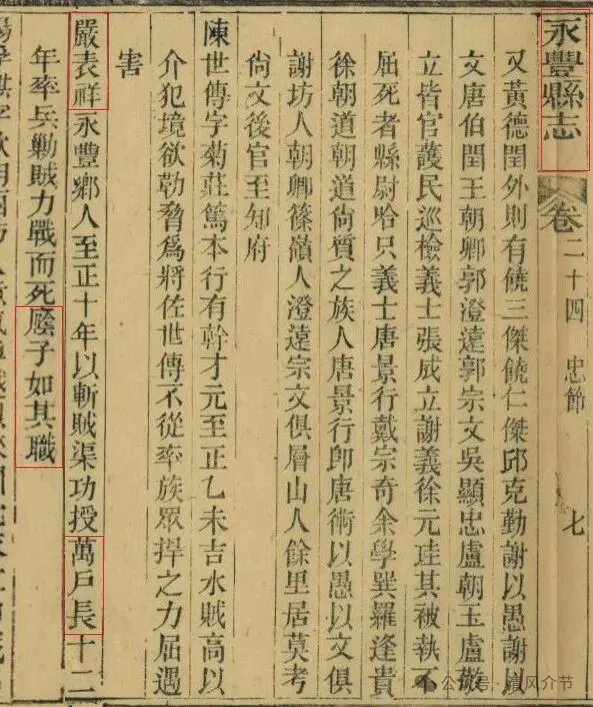 永豐縣志 卷二十四 忠節 七
又黃德閏外則有饒三傑饒仁傑邱克勤謝以愚謝以
文唐伯閏王朝卿郭澄遠郭宗文吳顯忠盧朝玉盧敬
立皆官護民巡檢義士張成立謝義徐元珪其被執不
屈死者縣尉哈只義士唐景行戴宗奇余學巽羅逢貴
徐朝道朝道尙質之族人唐景行卽唐術以愚以文俱
謝坊人朝卿篠嶺人澄遠宗文俱層山人餘里居莫考
尙文後官至知府
陳世傳字菊莊篤本行有幹才元至正乙未吉水賊高以
介犯境欲勒脅爲將佐世傳不從率族眾捍之力屈遇
害
嚴表祥永豐鄉人至正十年以斬賊渠功授萬戶長十二
年率兵勦賊力戰而死廕子如其職
公众号·風介节